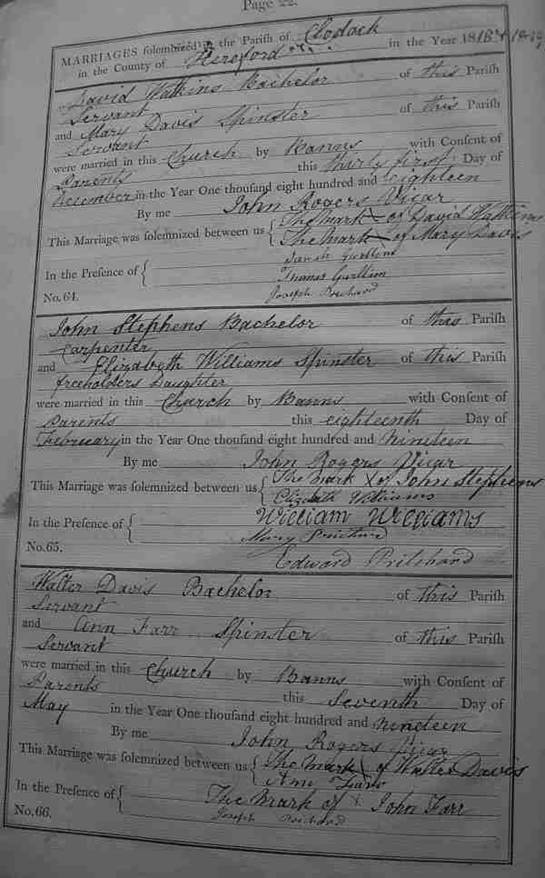 Page 22.
MARRIAGES solemnized in the Parish of Clodock
in the County of Hereford in the Year 1818 & 1819
David Watkins Bachelor of this Parish
Servant
and Mary Davis Spinster of this Parish
Servant
were married in this Church by Banns with Consent of
Parents this thirty first Day of
December in the Year One thousand eight hundred and eighteen
By me John Rogers Vicar
This Marriage was solemnized between us { The mark X of David Watkins
The mark X of Mary Davis
In the Presence of { Sarah
Thomas
No. 64. Joseph Prichard
John Stephens Bachelor of this Parish
Carpenter
and Elizabeth Williams Spinster of this Parish
freeholders Daughter
were married in this Church by Banns with Consent of
Parents this eighteenth Day of
February in the Year One thousand eight hundred and nineteen
By me John Rogers Vicar
This Marriage was solemnized between us { The mark X of John Stephens
Elizabeth Williams
In the Presence of { William Williams
Mary Pritchard
No. 65. Edward Prichard
Walter Davis Bachelor of this Parish
Servant
and Ann Farr Spinster of this Parish
Servant
were married in this Church by Banns with Consent of
Parents this Seventh Day of
May in the Year One thousand eight hundred and nineteen
By me John Rogers Vicar
This Marriage was solemnized between us { The mark X of Walter Davis
Ann
In the Presence of { The mark of X John Farr
No. 66. Joseph Prichard